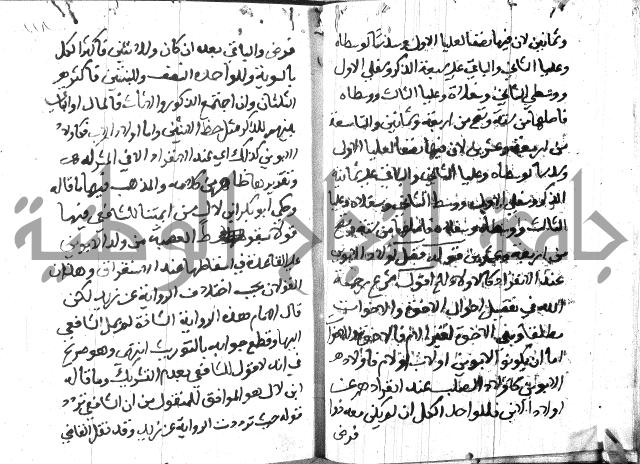 وثمانين لان فيها نصفا للعليا الاول وسدسا لوسطاه
وعليا الثاني والباقي على سبعة الذكر وسفلى الاول
ووسطى الثاني وسفلاه وعليا الثالث ووسطاه
فاصلها من ستة وتصح من اربعة وثمانين والتاسعة
من اربعة وعشرين لان فيها نصفا للعليا الاول
وسدسا لوسطاه وعليا الثاني والباقي على ثمانية
الذكر وسفلى الاول ووسطى الثاني وسفلاه وعليا
الثالث ووسطاه وسفلاه فاصلها من ستة وتصح
من اربعة وعشرين قوله فصل اولاد الابوين
عند الانفراد كالاولاد الخ اقول شرع رحمه
الله في تفصيل احوال الاخوة والاخوات
مطلقا وبنى الاخوة لغير الام فالاخوة
اما ان يكونو لابوين او لاب او لام فاولاد
الابوين كاولاد الصلب عند انفرادهم عن
اولاد الابن فللواحد الكل ان لم يكن معه ذو
فرض
١١٨
فرض والباقي بعده ان كان وللاثنين فاكثر الكل
بالسوية وللواحدة النصف وللبنتين فاكثر
الثلثان وان اجتمع الذكور والاناث فالمال او الباقي
بينهم للذكر مثل حظ الانثيين واما اولاد الاب فكاولاد
الابوين كذلك اي عند الانفراد الا في المشركة
وتقديرها والمذهب فيها ما قاله
وحكى ابو بكر ابن لال من ايمتنا للشافعي فيها
قولا سقوط العصبة من ولد الابوين
على القاعدة في اسقاطها عند الاستغراق وهذان
القولان بحسب اختلاف الرواية عن زيد لكن
قال الامام هذه الرواية الشاذة لم يمل الشافعي
اليها وقطع جوابه بالتوريث انتهى وهو صريح
في انه لا قول للشافعي بعدم التشريك وما قاله
ابن لال هو الموافق للمنقول من ان الشافعي تردد
قوله حيث ترددت الرواية عن زيد وقد نقل القاضي
جامعة النجاح الوطنية